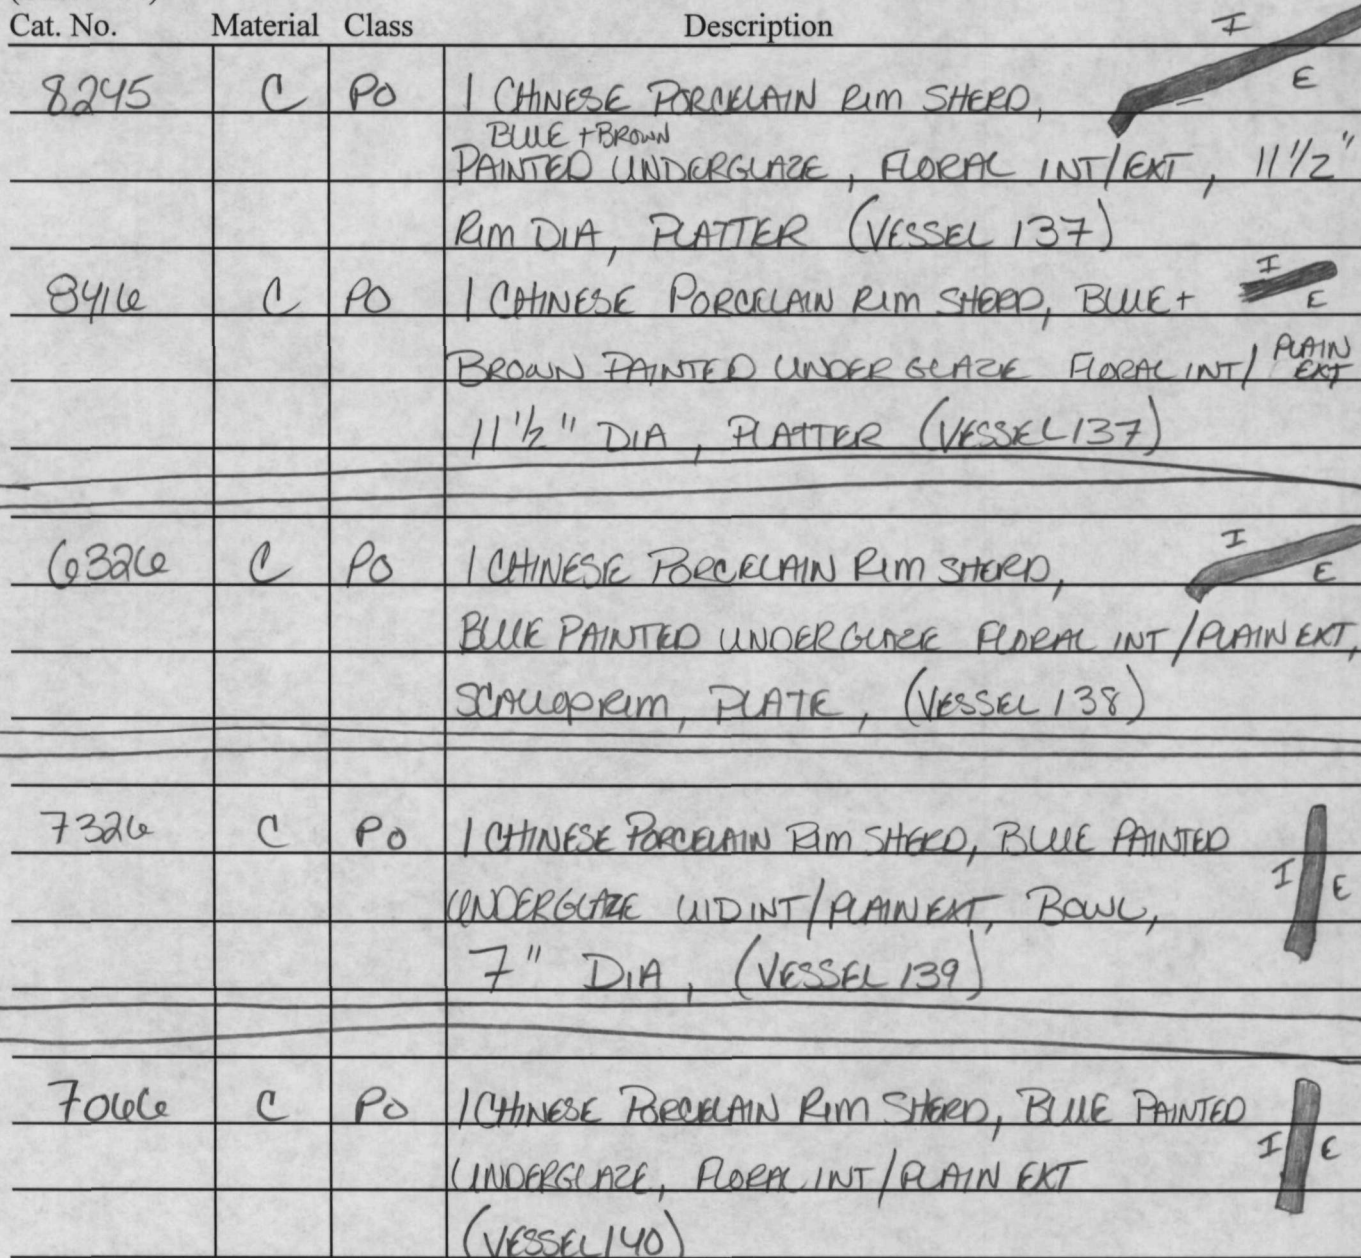 Cat. No. Material Class Description
I
E
8245 C PO 1 CHINESE PORCELAIN RIM SHERD,
BLUE + BROWN
PAINTED UNDERGLAZE, FLORAL INT/EXT, 11 1/2"
RIM DIA, PLATTER (VESSEL 137)
I
E
8416 C PO 1 CHINESE PORCELAIN RIM SHERD, BLUE +
BROWN PAINTED UNDERGLAZE FLORAL INT/ PLAIN
EXT
11 1/2" DIA, PLATTER (VESSEL 137)
I
E
6326 C PO 1 CHINESE PORCELAIN RIM SHERD,
BLUE PAINTED UNDERGLAZE FLORAL INT/PLAIN EXT,
SCALLOP RIM, PLATE, (VESSEL 138)
7326 C PO 1 CHINESE PORCELAIN RIM SHERD, BLUE PAINTED
I E
UNDERGLAZE UID INT/PLAIN EXT, BOWL,
7" DIA, (VESSEL 139)
7066 C PO 1 CHINESE PORCELAIN RIM SHERD, BLUE PAINTED
I E
UNDERGLAZE, FLORAL INT/PLAIN EXT
(VESSEL 140)